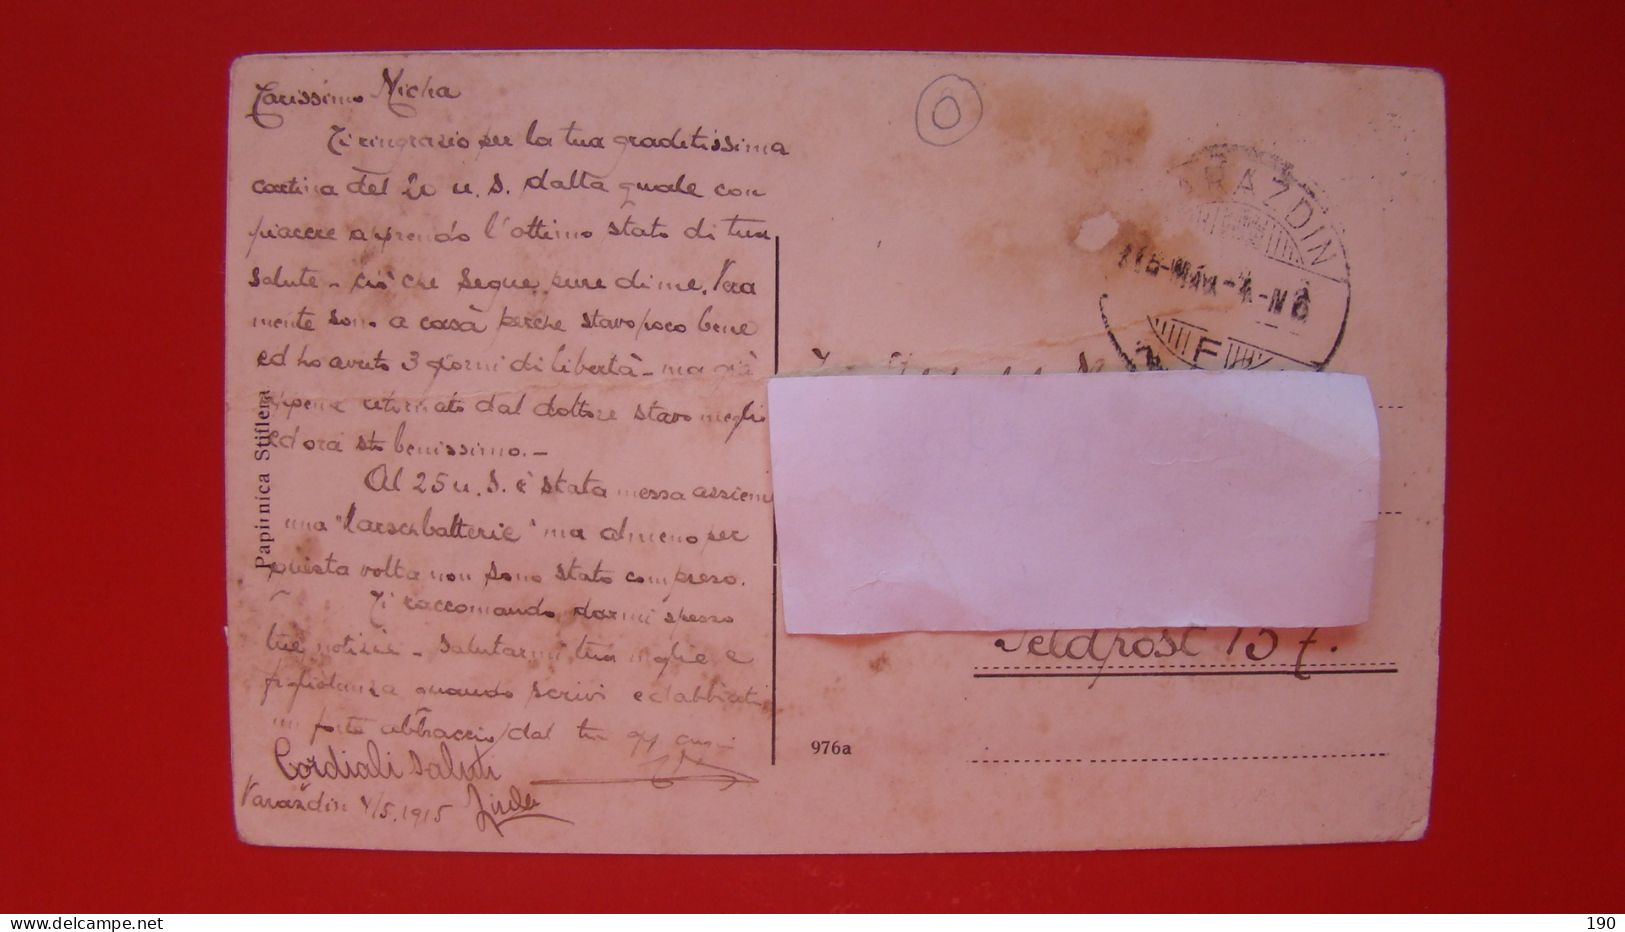 Carissimo Micha
Ti ringrazio per la tua graditissima
cartina del 20 u. s. dalla quale con
piacere apprendo l'ottimo stato di tua
salute - ciò che segue pure di me. Vera
mente sono a casà perche stavo poco bene
ed ho avuto 3 giorni di libertà - ma già
appena retornato dal dottore stavo meglio
ed ora sto benissimo. -
Al 25 u. s. è stata messa assieme
una "Marschbatterie" ma almeno per
questa volta non sono stato compreso.
Ti raccomando darmi spesso
tue notizie - salutarmi tua moglie e
figliolanza quando scrivi ed abbiati
un forte abbraccio dal tuo
Cordiali saluti
Varazdin 4/5.1915
Papirnica Stiflera
976a
RAZDIN
915-MÁJ.-4.-N6
F
Feldpost 157.
delcampe.net
190